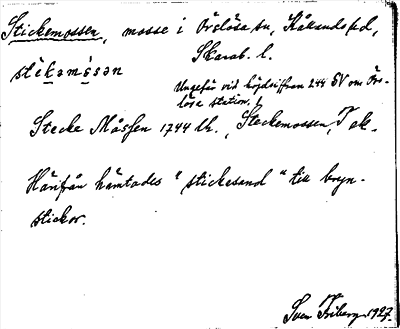 Stickemossen, mosse i Örslösa sn, Kålands hd,
Skarab. l.
stikəmósən
Ungefär vid höjdsiffran 244 SV om Örs-
lösa station.
Stecke Måssen 1744 lh., Steckemossen, T ek.
Härifrån hämtades "stickesand" till bryn-
stickor.
Sven Friberg 1927.